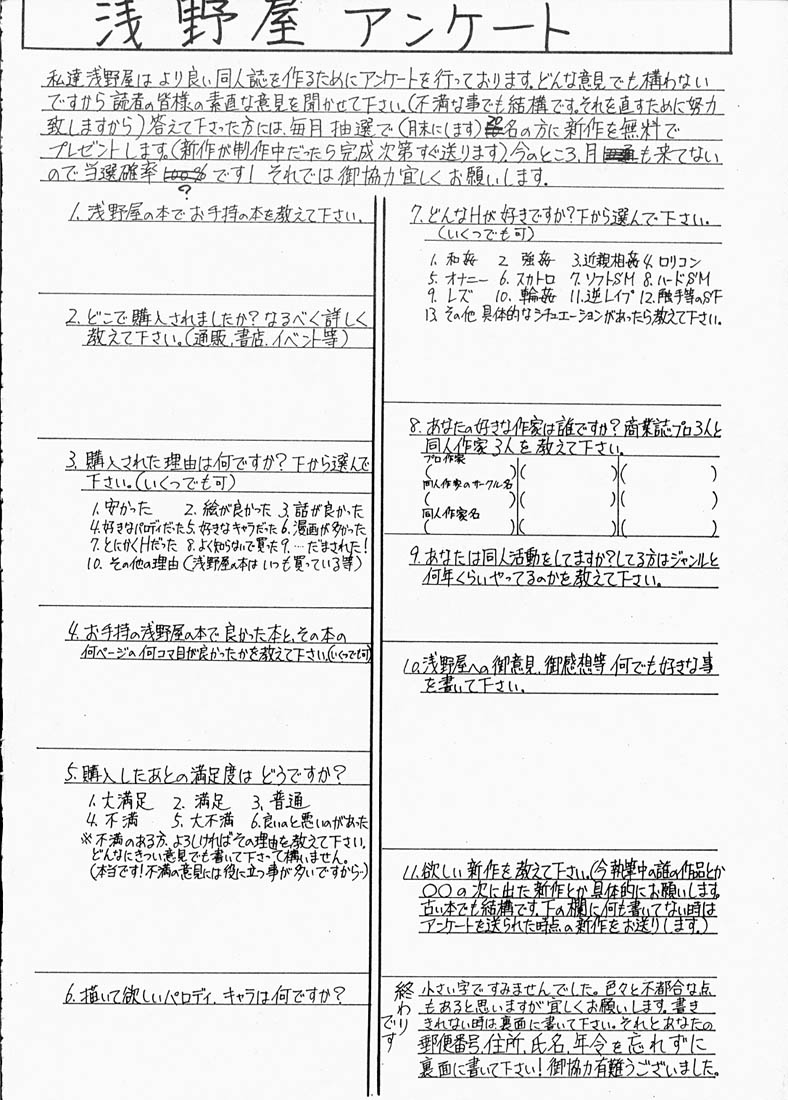 浅野屋 アンケート
私達浅野屋はより良い同人誌を作るためにアンケートを行っております。どんな意見でも構わない
ですから読者の皆様の素直な意見を聞かせて下さい。(不満な事でも結構です。それを直すために努力
致しますから)答えて下さった方には、毎月抽選で(月末にします)20名の方に新作を無料で
プレゼントします。(新作が制作中だったら完成次第すぐ送ります)今のところ、月も来てない
ので当選確率100%です! それでは御協力宜しくお願いします。
?
1. 浅野屋の本でお手持の本を教えて下さい。
2. どこで購入されましたか?なるべく詳しく
教えて下さい。(通販、書店、イベント等)
3. 購入された理由は何ですか?下から選んで
下さい。(いくつでも可)
1. 安かった 2. 絵が良かった 3. 話が良かった
4. 好きなパロディだった 5. 好きなキャラだった 6. 漫画が多かった
7. とにかくHだった 8. よく知らないで買った 9. …だまされた!
10. その他の理由(浅野屋の本はいつも買っている等)
4. お手持の浅野屋の本で良かった本と、その本の
何ページの何コマ目が良かったかを教えて下さい。(いくつでも可)
5. 購入したあとの満足度はどうですか?
1. 大満足 2. 満足 3. 普通
4. 不満 5. 大不満 6. 良いのと悪いのがあった
※不満のある方、よろしければその理由を教えて下さい。
どんなにきつい意見でも書いて下さって構いません。
(本当です!不満の意見には役に立つ事が多いですから…)
6. 描いて欲しいパロディ、キャラは何ですか?
7. どんなHが好きですか?下から選んで下さい。
(いくつでも可)
1. 和姦 2. 強姦 3. 近親相姦 4. ロリコン
5. オナニー 6. スカトロ 7. ソフトSM 8. ハードSM
9. レズ 10. 輪姦 11. 逆レイプ 12. 触手等のSF
13. その他 具体的なシチュエーションがあったら教えて下さい。
8. あなたの好きな作家は誰ですか?商業誌プロ3人と
同人作家3人を教えて下さい。
プロ作家
( ) ( ) ( )
同人作家のサークル名
( ) ( ) ( )
同人作家名
( ) ( ) ( )
9. あなたは同人活動をしてますか?してる方はジャンルと
何年くらいやってるのかを教えて下さい。
10. 浅野屋への御意見、御感想等何でも好きな事
を書いて下さい。
11. 欲しい新作を教えて下さい。(今執筆中の誰の作品とか
〇〇の次に出た新作とか具体的にお願いします。
古い本でも結構です。下の欄に何も書いてない時は
アンケートを送られた時点の新作をお送りします。)
終わりです
小さい字ですみませんでした。色々と不都合な点
もあると思いますが宜しくお願いします。書き
きれない時は裏面に書いて下さい。それとあなたの
郵便番号、住所、氏名、年令を忘れずに
裏面に書いて下さい!御協力有難うございました。